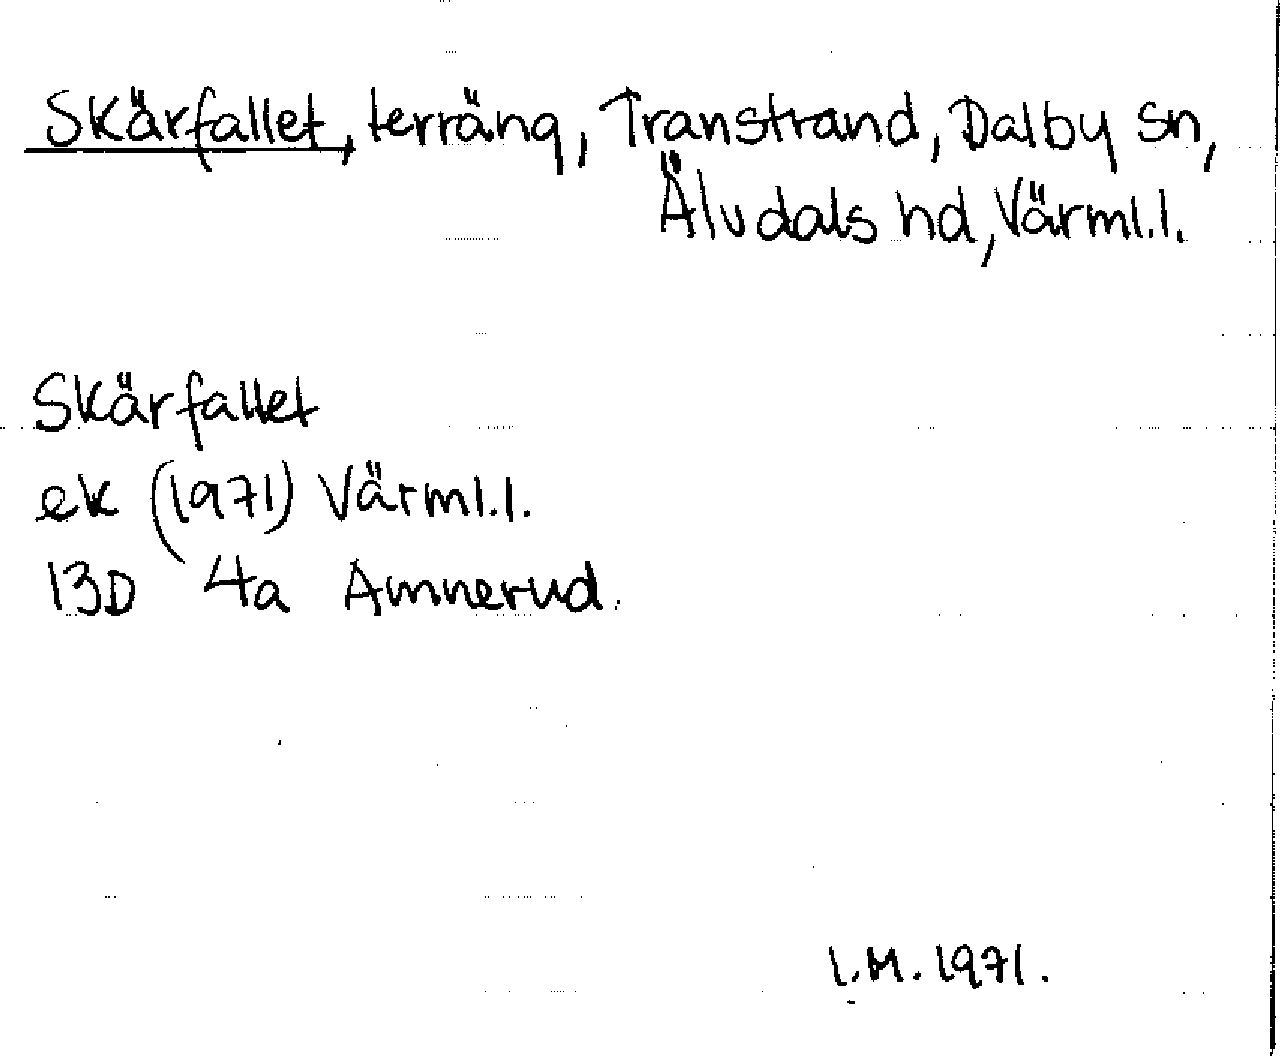 Skärfallet, terräng, Transtrand, Dalby sn,
Älvdals hd, Värml.l.
Skärfallet
ek (1971) Värml.l.
13D 4a Amnerud.
I.M. 1971.